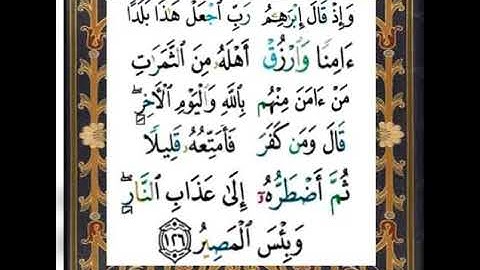 وَإِذْ قَالَ إِبْرَٰهِـۧمُ رَبِّ ٱجْعَلْ هَٰذَا بَلَدًا
ءَامِنًا وَٱرْزُقْ أَهْلَهُۥ مِنَ ٱلثَّمَرَٰتِ
مَنْ ءَامَنَ مِنْهُم بِٱللَّهِ وَٱلْيَوْمِ ٱلْأٓخِرِ ۖ
قَالَ وَمَن كَفَرَ فَأُمَتِّعُهُۥ قَلِيلًا
ثُمَّ أَضْطَرُّهُۥٓ إِلَىٰ عَذَابِ ٱلنَّارِ ۖ
وَبِئْسَ ٱلْمَصِيرُ ١٢٦